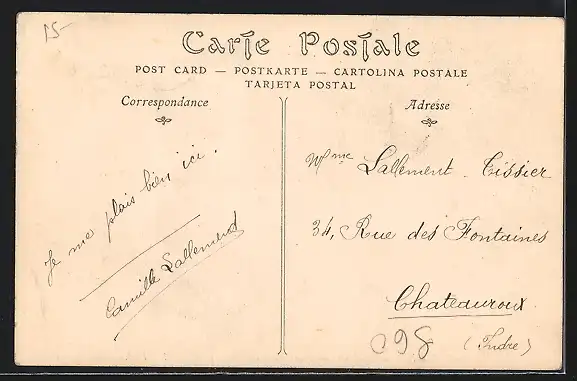 15-
Carte Postale
POST CARD — POSTKARTE — CARTOLINA POSTALE
TARJETA POSTAL
Correspondance
Adresse
Je me plais bien ici.
Camille Lallement
Mme Lallement-Tissier
34, Rue des Fontaines
Chateauroux
(Indre)
098